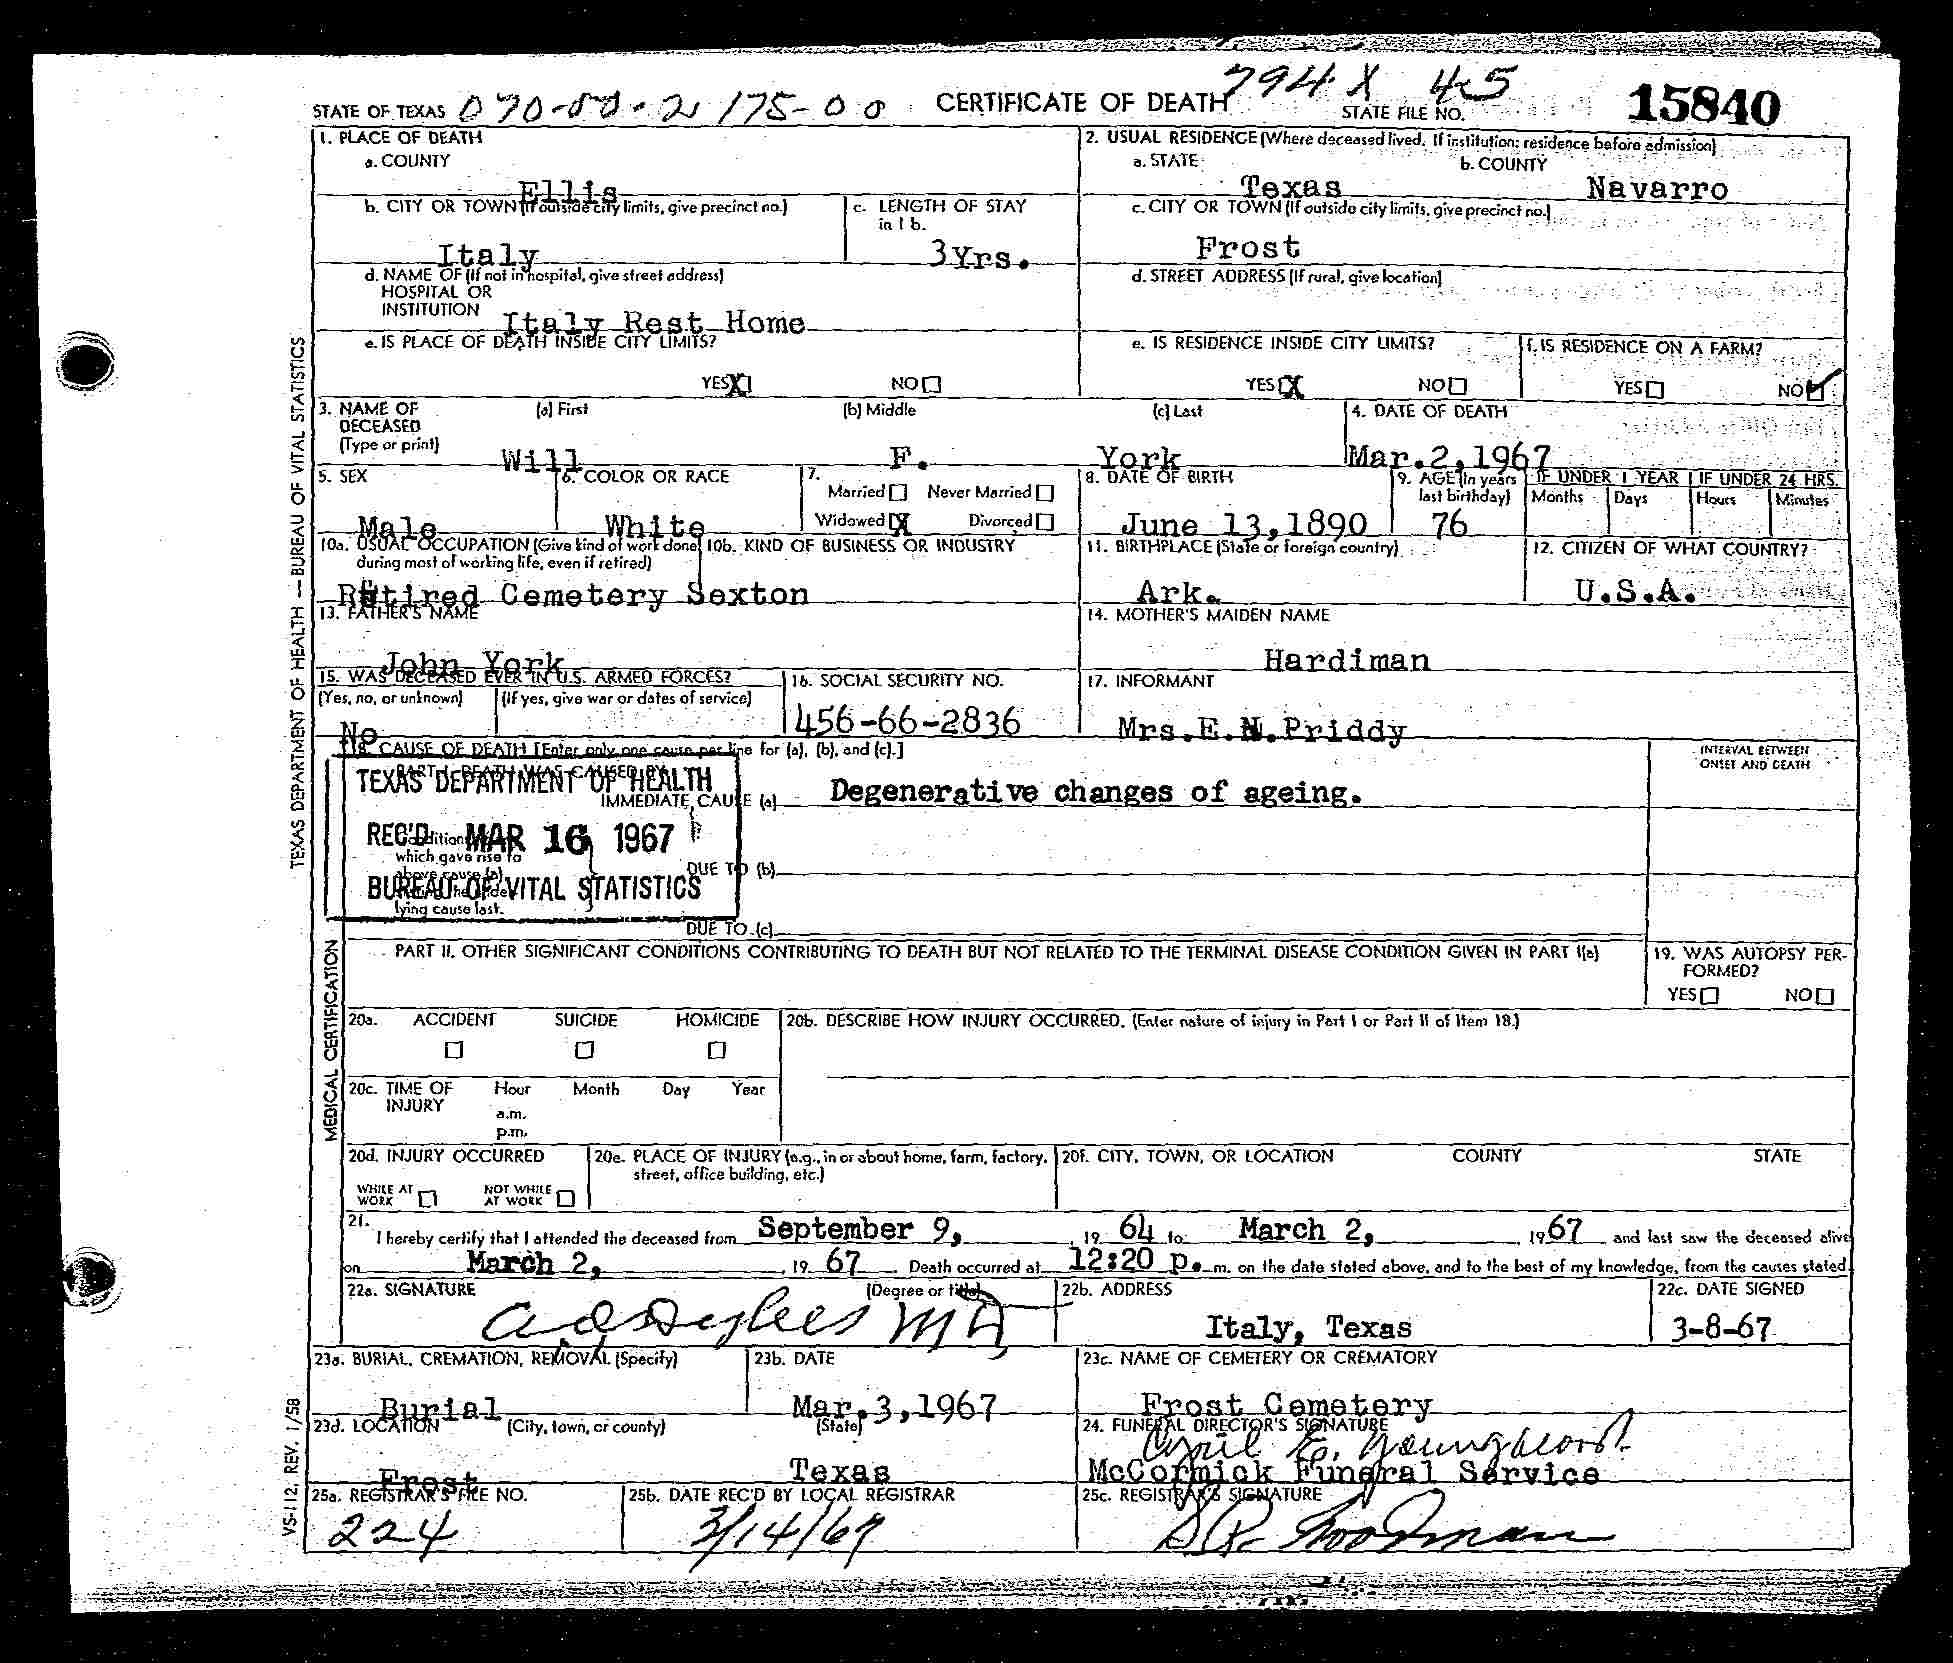 STATE OF TEXAS 070-00-2 175-00 CERTIFICATE OF DEATH 794 X 45 STATE FILE NO. 15840
1. PLACE OF DEATH
a. COUNTY
Ellis
2. USUAL RESIDENCE (Where deceased lived. If institution: residence before admission)
a. STATE b. COUNTY
Texas Navarro
b. CITY OR TOWN (If outside city limits, give precinct no.)
Italy
c. LENGTH OF STAY
in 1 b.
3Yrs.
c. CITY OR TOWN (If outside city limits, give precinct no.)
Frost
d. NAME OF (If not in hospital, give street address)
HOSPITAL OR
INSTITUTION Italy Rest Home
d. STREET ADDRESS (If rural, give location)
e. IS PLACE OF DEATH INSIDE CITY LIMITS?
YES X NO
e. IS RESIDENCE INSIDE CITY LIMITS?
YES X NO
f. IS RESIDENCE ON A FARM?
YES NO ✓
3. NAME OF DECEASED
(Type or print)
(a) First (b) Middle (c) Last
Will F. York
4. DATE OF DEATH
Mar.2,1967
5. SEX
Male
6. COLOR OR RACE
White
7.
Married Never Married
Widowed X Divorced
8. DATE OF BIRTH
June 13,1890
9. AGE (In years
last birthday)
76
IF UNDER 1 YEAR IF UNDER 24 HRS.
Months Days Hours Minutes
10a. USUAL OCCUPATION (Give kind of work done
during most of working life, even if retired)
10b. KIND OF BUSINESS OR INDUSTRY
Retired Cemetery Sexton
11. BIRTHPLACE (State or foreign country)
Ark.
12. CITIZEN OF WHAT COUNTRY?
U.S.A.
13. FATHER'S NAME
John York
14. MOTHER'S MAIDEN NAME
Hardiman
15. WAS DECEASED EVER IN U.S. ARMED FORCES?
(Yes, no, or unknown) (If yes, give war or dates of service)
No
16. SOCIAL SECURITY NO.
456-66-2836
17. INFORMANT
Mrs.E.N.Priddy
18. CAUSE OF DEATH [Enter only one cause per line for (a), (b), and (c).]
INTERVAL BETWEEN
ONSET AND DEATH
PART I. DEATH WAS CAUSED BY:
IMMEDIATE CAUSE (a) Degenerative changes of ageing.
TEXAS DEPARTMENT OF HEALTH
REC'D MAR 16 1967
BUREAU OF VITAL STATISTICS
Conditions
which gave rise to
above cause (a)
lying cause last.
DUE TO (b)
DUE TO (c)
PART II. OTHER SIGNIFICANT CONDITIONS CONTRIBUTING TO DEATH BUT NOT RELATED TO THE TERMINAL DISEASE CONDITION GIVEN IN PART I(a)
19. WAS AUTOPSY PER-
FORMED?
YES NO
20a. ACCIDENT SUICIDE HOMICIDE
20b. DESCRIBE HOW INJURY OCCURRED. (Enter nature of injury in Part I or Part II of Item 18.)
20c. TIME OF INJURY Hour Month Day Year
a.m.
p.m.
20d. INJURY OCCURRED
WHILE AT WORK NOT WHILE AT WORK
20e. PLACE OF INJURY (e.g., in or about home, farm, factory,
street, office building, etc.)
20f. CITY, TOWN, OR LOCATION COUNTY STATE
21.
I hereby certify that I attended the deceased from September 9, 19 64 to March 2, 19 67 and last saw the deceased alive
on March 2, 19 67 . Death occurred at 12:20 p. m. on the date stated above, and to the best of my knowledge, from the causes stated
22a. SIGNATURE (Degree or title)
MD
22b. ADDRESS
Italy, Texas
22c. DATE SIGNED
3-8-67
23a. BURIAL, CREMATION, REMOVAL (Specify)
Burial
23b. DATE
Mar.3,1967
23c. NAME OF CEMETERY OR CREMATORY
Frost Cemetery
23d. LOCATION (City, town, or county) (State)
Frost Texas
24. FUNERAL DIRECTOR'S SIGNATURE
Cyril E. Youngblood
McCormick Funeral Service
25a. REGISTRAR'S FILE NO.
224
25b. DATE REC'D BY LOCAL REGISTRAR
3/14/67
25c. REGISTRAR'S SIGNATURE
TEXAS DEPARTMENT OF HEALTH — BUREAU OF VITAL STATISTICS
MEDICAL CERTIFICATION
VS-112, REV. 1/58